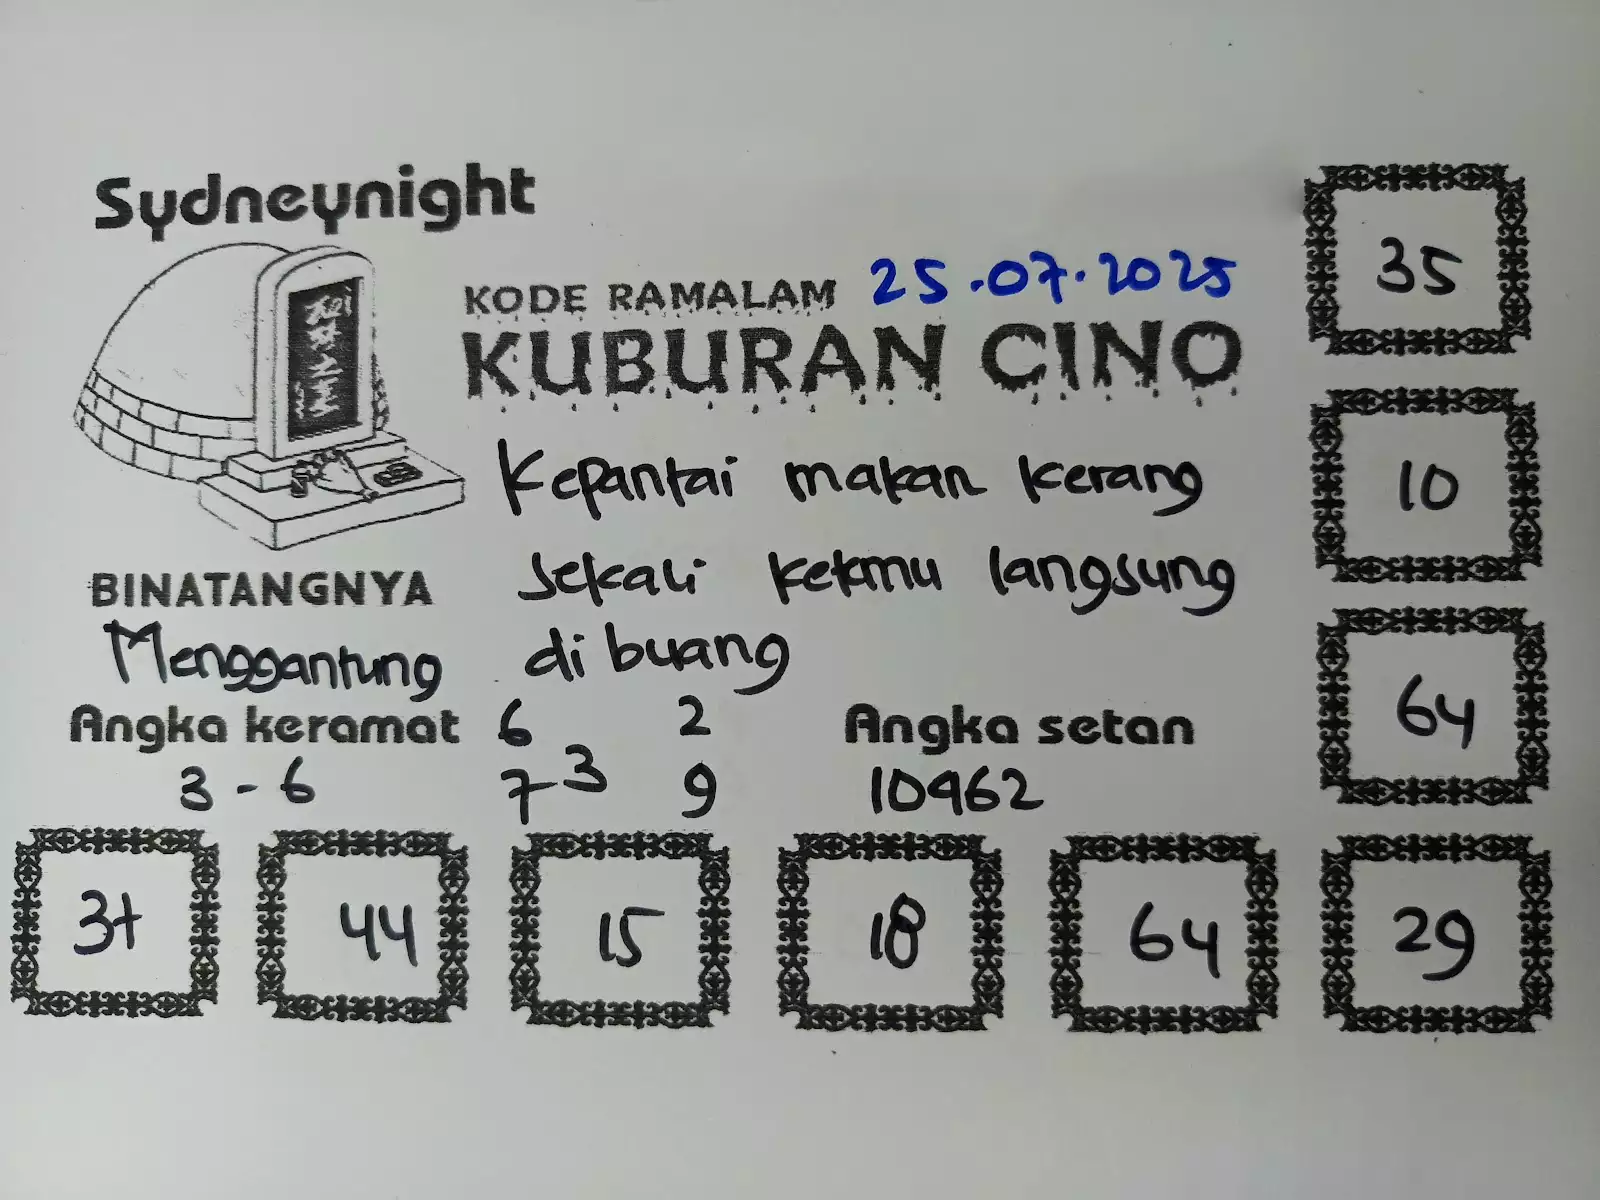 Sydneynight
KODE RAMALAM 25.07.2025
KUBURAN CINO
Kepantai makan kerang
sekali ketmu langsung
di buang
BINATANGNYA
Menggantung
Angka keramat
3 - 6
6 2
3
7 9
Angka setan
10462
35
10
64
37
44
15
18
64
29